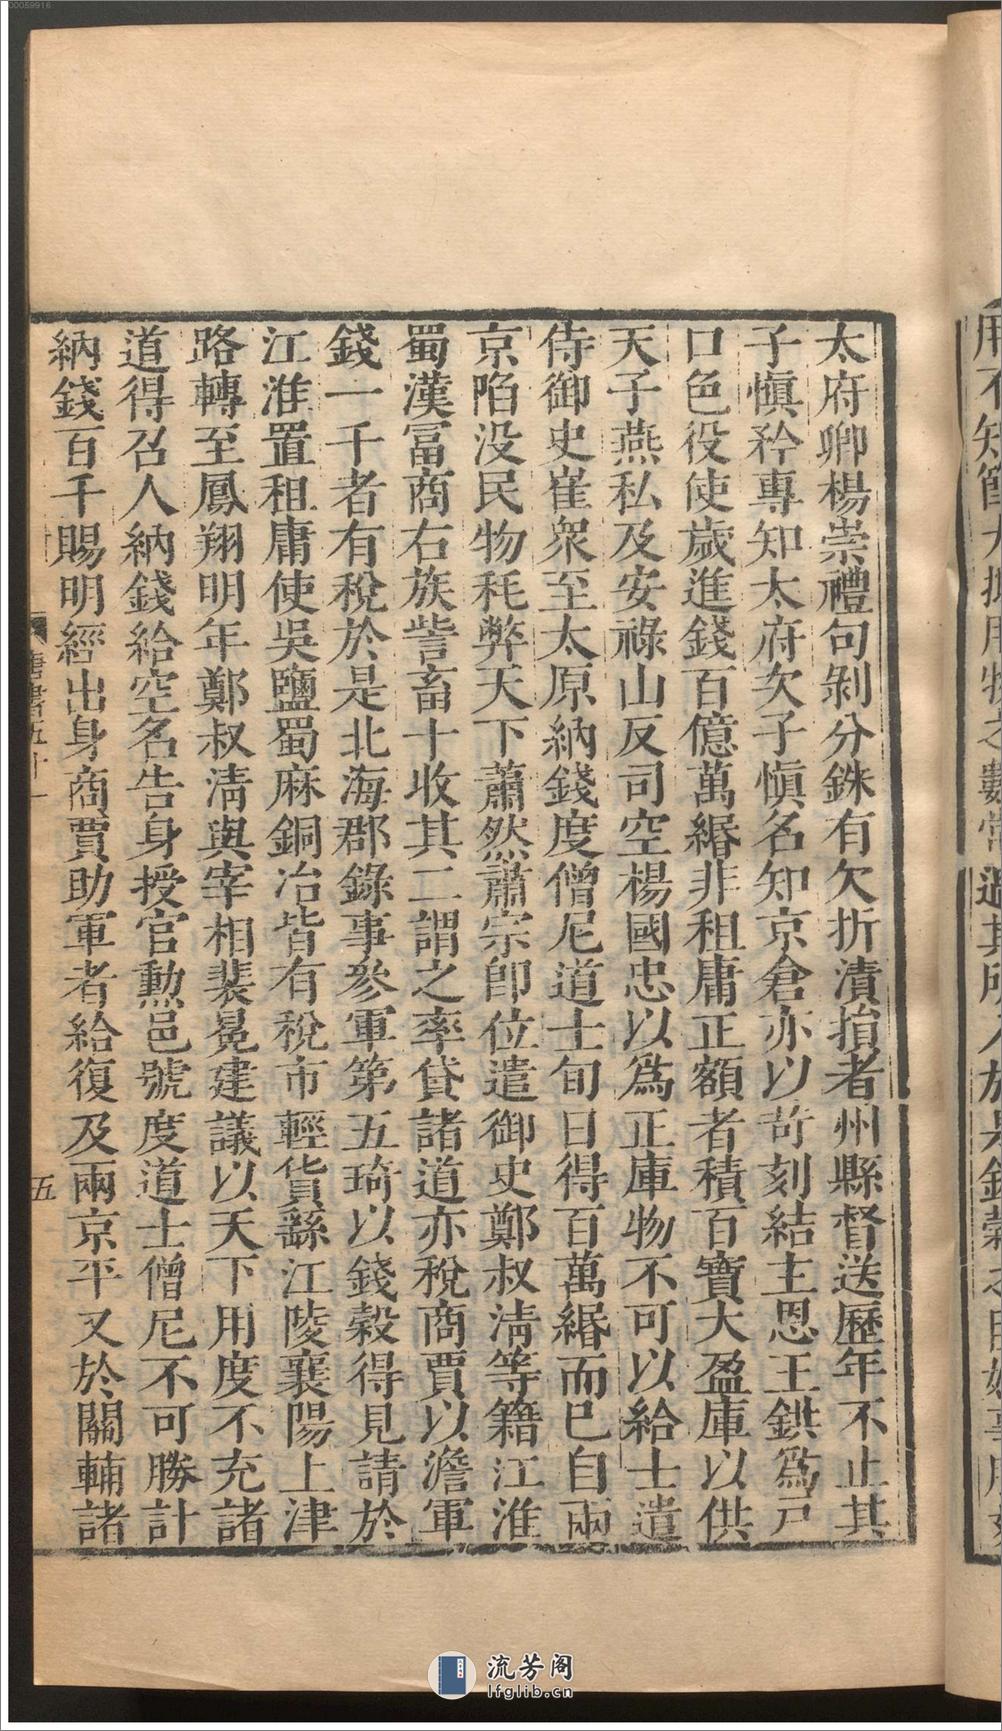 用不知節大抵用物之數常過其所入於是錢穀之臣始事朘刻
太府卿楊崇禮句剝分銖有欠折漬損者州縣督送歷年不止其
子愼矜專知太府次子愼名知京倉亦以苛刻結主恩王鉷爲戸
口色役使歲進錢百億萬緡非租庸正額者積百寶大盈庫以供
天子燕私及安祿山反司空楊國忠以爲正庫物不可以給士遣
侍御史崔衆至太原納錢度僧尼道士旬日得百萬緡而已自兩
京陷没民物耗弊天下蕭然肅宗即位遣御史鄭叔淸等籍江淮
蜀漢富商右族訾畜十收其二謂之率貸諸道亦稅商賈以澹軍
錢一千者有稅於是北海郡錄事參軍第五琦以錢穀得見請於
江淮置租庸使吳鹽蜀麻銅冶皆有稅市輕貨繇江陵襄陽上津
路轉至鳳翔明年鄭叔淸與宰相裴冕建議以天下用度不充諸
道得召人納錢給空名告身授官勲邑號度道士僧尼不可勝計
納錢百千賜明經出身商賈助軍者給復及兩京平又於關輔諸
唐書五十一
五
00059916
流芳阁
lfglib.cn